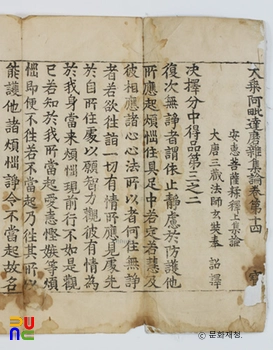 大乘阿毗達磨雜集論卷第十四
安惠菩薩糅釋上集論
大唐三藏法師玄奘奉 詔譯
決擇分中得品第三之二
復次無諍者謂依止靜慮於防護他
所應起煩惱住具足中若定若慧及
彼相應諸心心法所以者何住無諍
者若欲往詣一切有情所應見處先
於自所住處以願智力觀彼有情為
於我身當來煩惱現前行不如是觀
已若知於我所當起愛恚慳嫉等煩
惱即便不往若不當起乃往其所以
能護他諸煩惱諍令不當起故名
PUNC
문화재청.